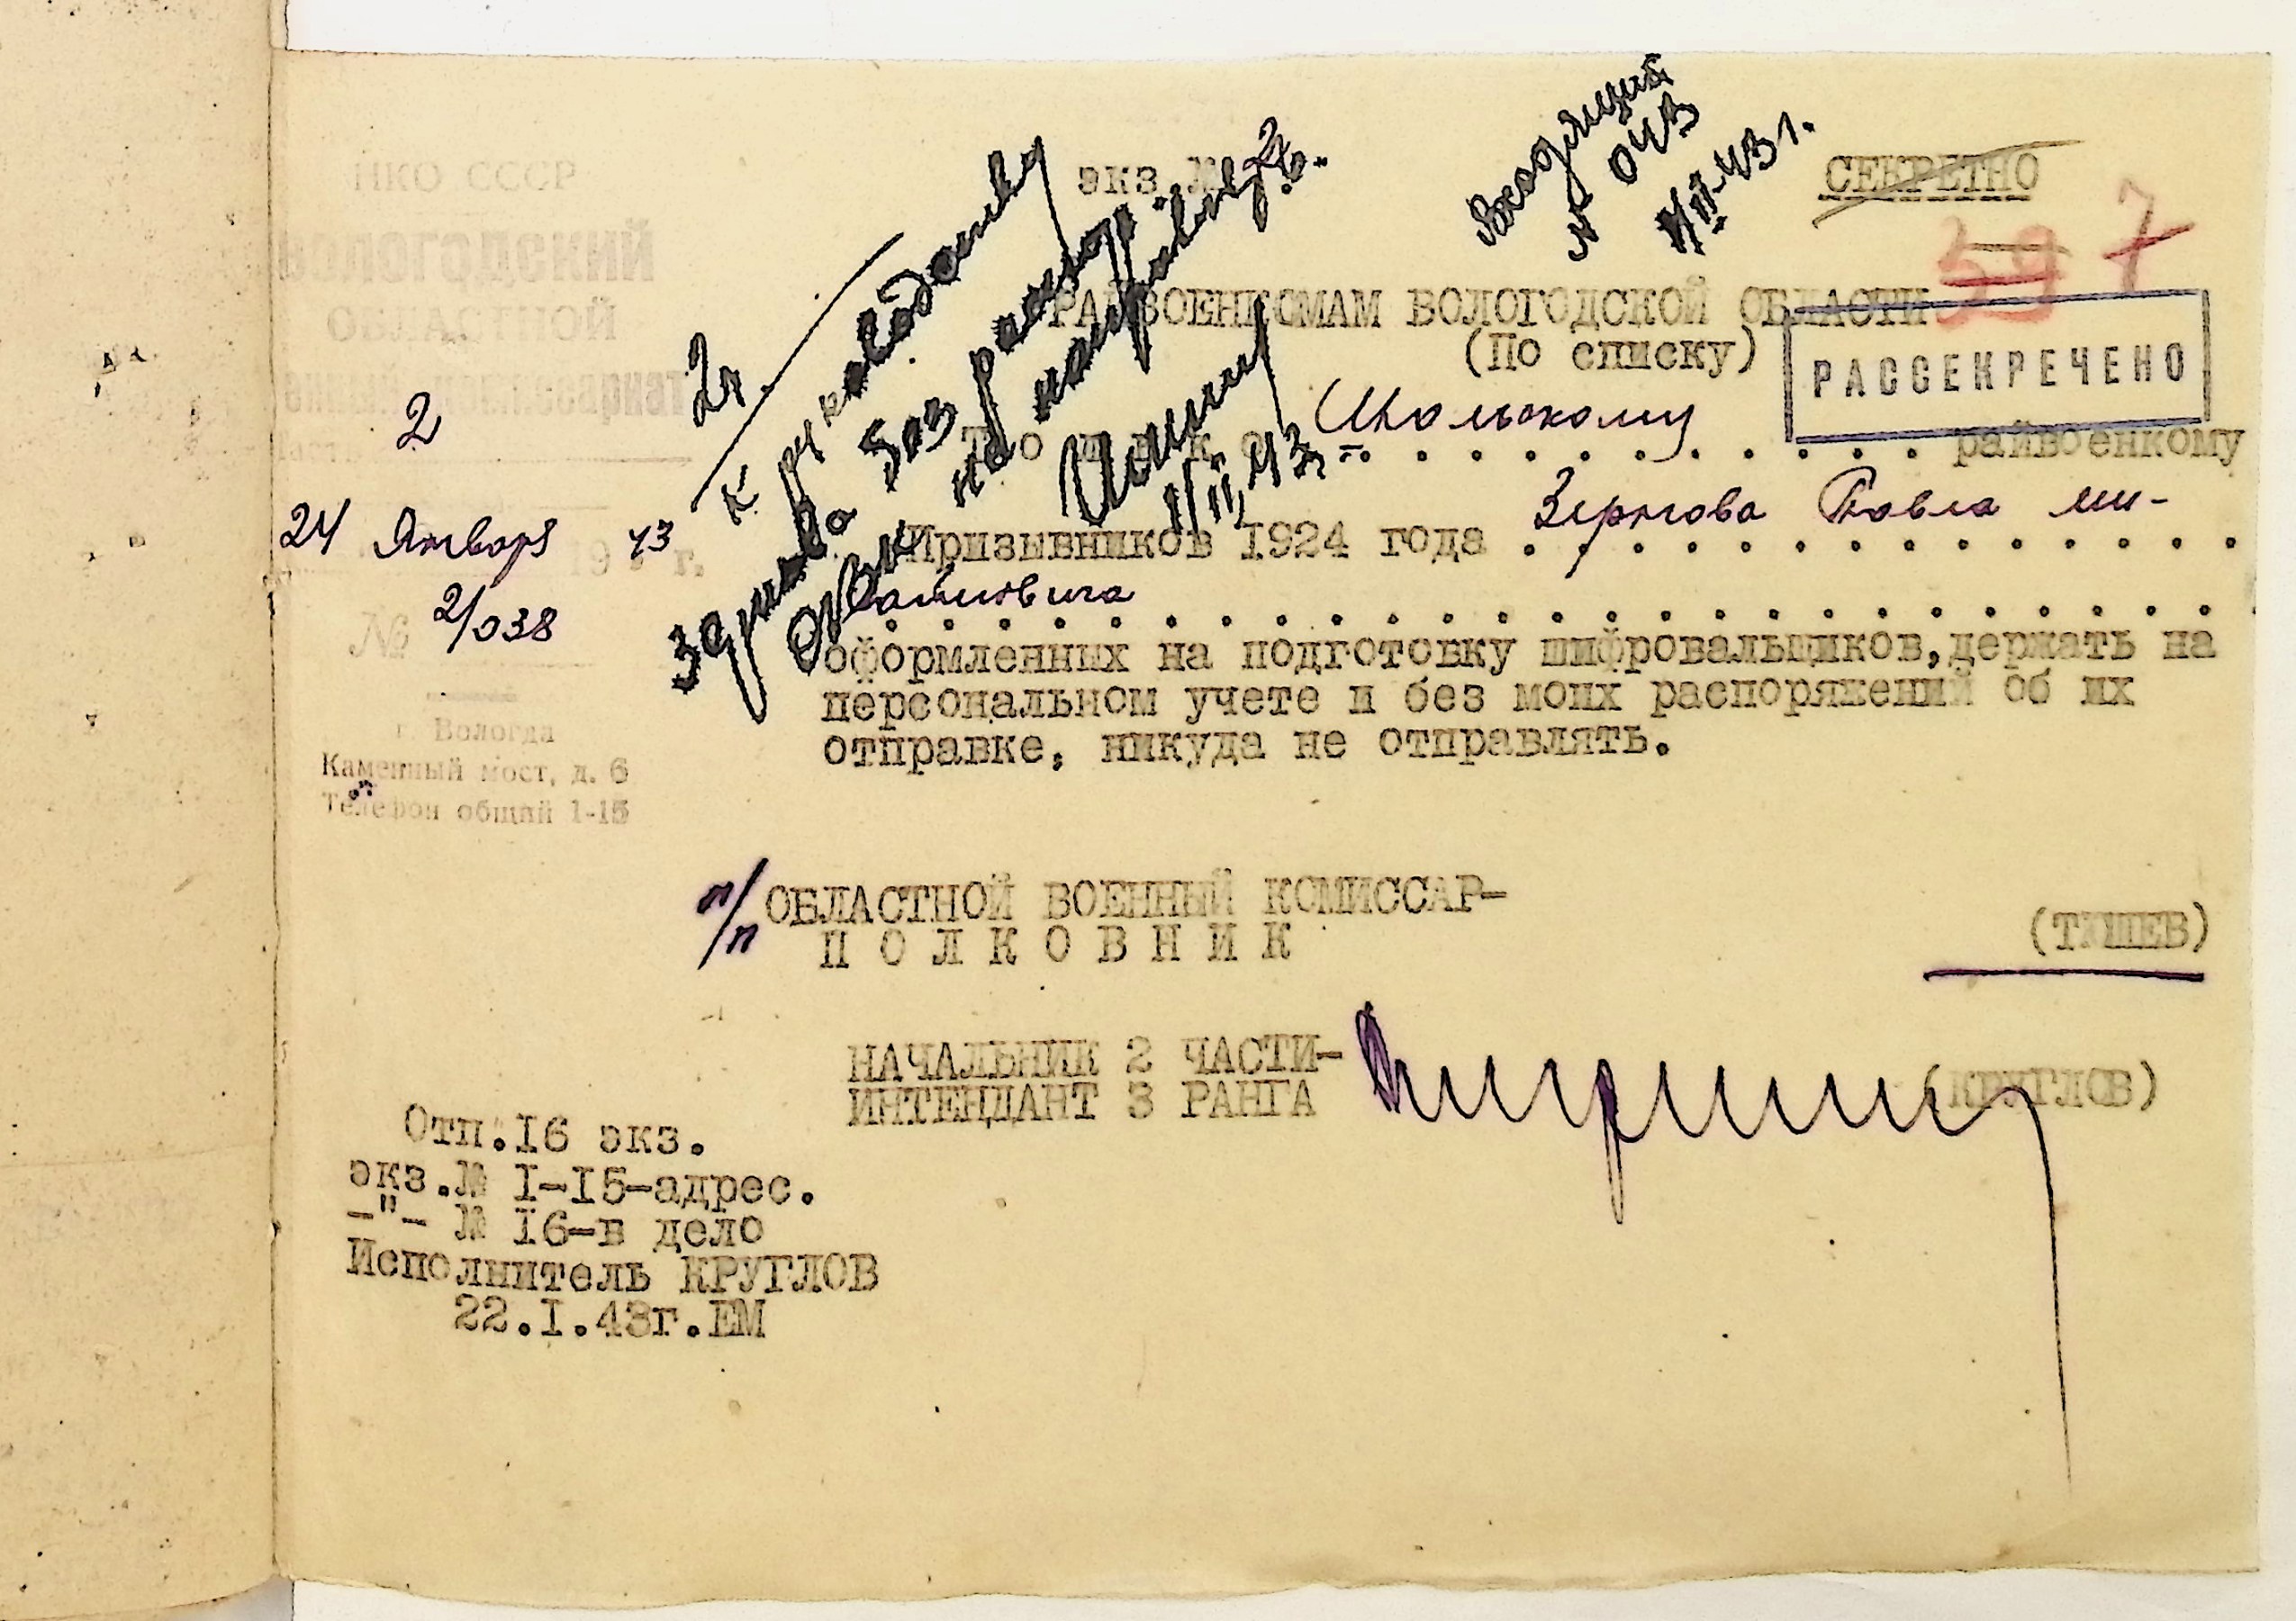 НКО СССР
ВОЛОГОДСКИЙ
ОБЛАСТНОЙ
ВОЕННЫЙ комиссариат
Часть 2
24 Января 1943 г.
№ 2/038
г. Вологда
Каменный мост, д. 6
Телефон общий 1-15
экз. №
Входящий
№ 043
1/II-43 г.
СЕКРЕТНО
39 7
РАЙВОЕНКОМАМ ВОЛОГОДСКОЙ ОБЛАСТИ
(По списку)
РАССЕКРЕЧЕНО
2ч.
К руководству
без распор.
не направлять.
1/II 43
Т о ш н к о Шольскому райвоенкому
Призывников 1924 года Зернова Павла ми-
хайловича
оформленных на подготовку шифровальщиков, держать на
персональном учете и без моих распоряжений об их
отправке, никуда не отправлять.
п/п ОБЛАСТНОЙ ВОЕННЫЙ КОМИССАР-
ПОЛКОВНИК (ТИШЕВ)
НАЧАЛЬНИК 2 ЧАСТИ-
ИНТЕНДАНТ 3 РАНГА (КРУГЛОВ)
Отп.16 экз.
экз.№ 1-15-адрес.
-"- № 16-в дело
Исполнитель КРУГЛОВ
22.I.43г.ЕМ